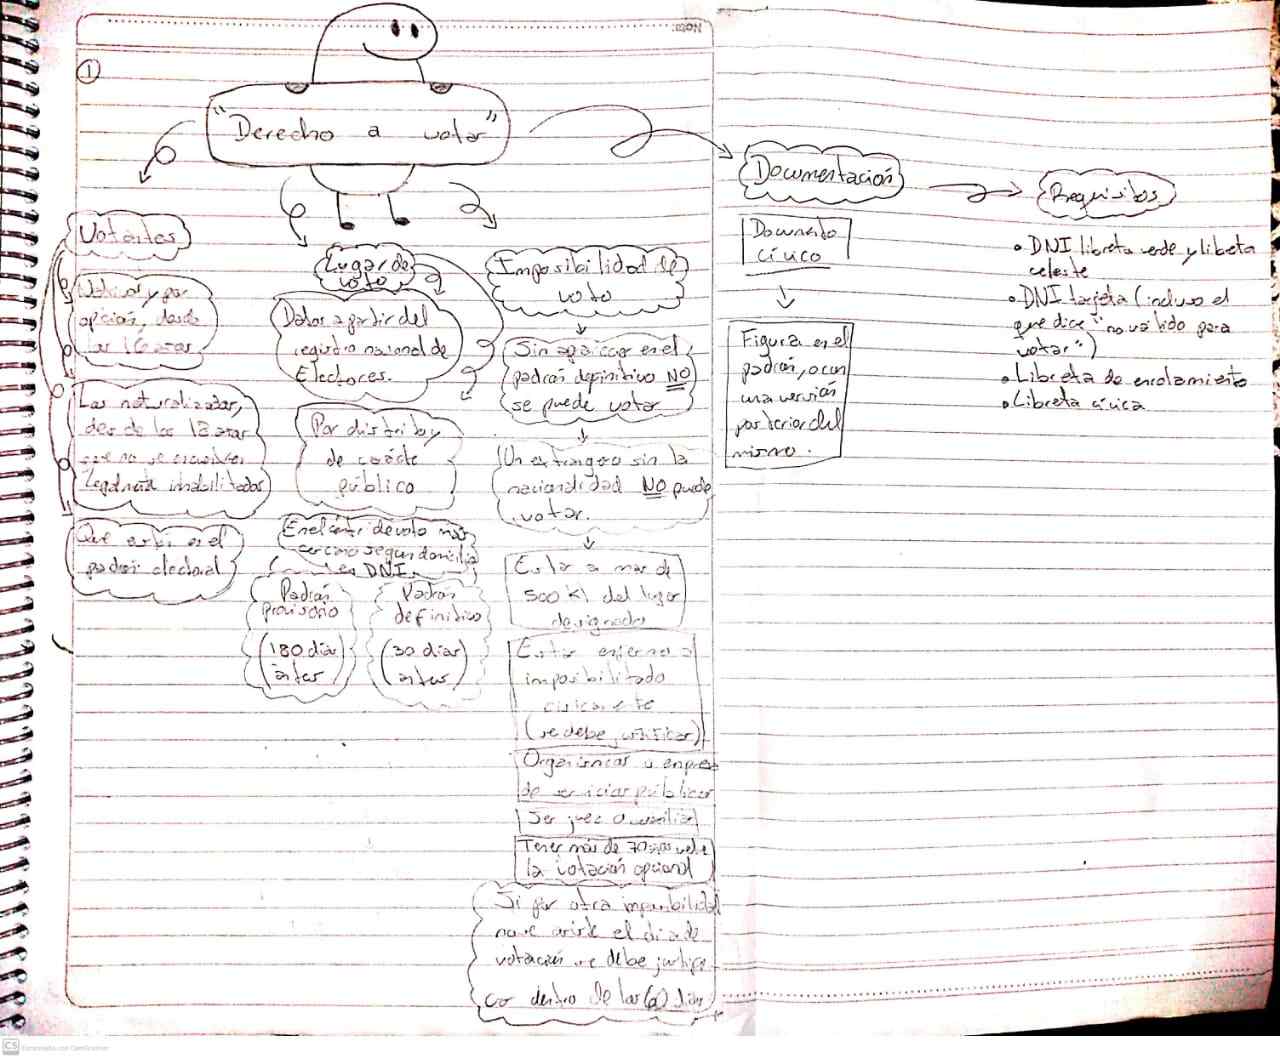 Nota:
1
"Derecho a votar"
Votantes
Nativos y por
opción, desde
los 16 años
Los naturalizados,
desde los 18 años
que no se encuentren
inhabilitados
Que estén en el
padrón electoral
Lugar de
voto
Datos a partir del
registro nacional de
Electores.
Por distrito y
de carácter
público
En el centro de voto más
cercano según domicilio
en DNI.
Padrón
provisorio
(180 días
antes)
Padrón
definitivo
(30 días
antes)
Imposibilidad de
voto
Sin aparecer en el
padrón definitivo NO
se puede votar
Un extrangero sin la
nacionalidad NO puede
votar.
Estar a más de
500 Kl del lugar
designado
Estar enfermo o
imposibilitado
(se debe justificar)
Organismos o empresas
de servicios públicos
Ser juez o auxiliar
Tener más de 70 años
la votación opcional
Si por otra imposibilidad
no se asiste el día de
votación se debe justifi
car dentro de los días
Documentación
Documento
cívico
Figura en el
padrón, o con
una versión
posterior del
mismo.
Requisitos
• DNI libreta verde y libreta
celeste
• DNI tarjeta (incluso el
que dice "no válido para
votar")
• Libreta de enrolamiento
• Libreta cívica
CS Escaneado con CamScanner